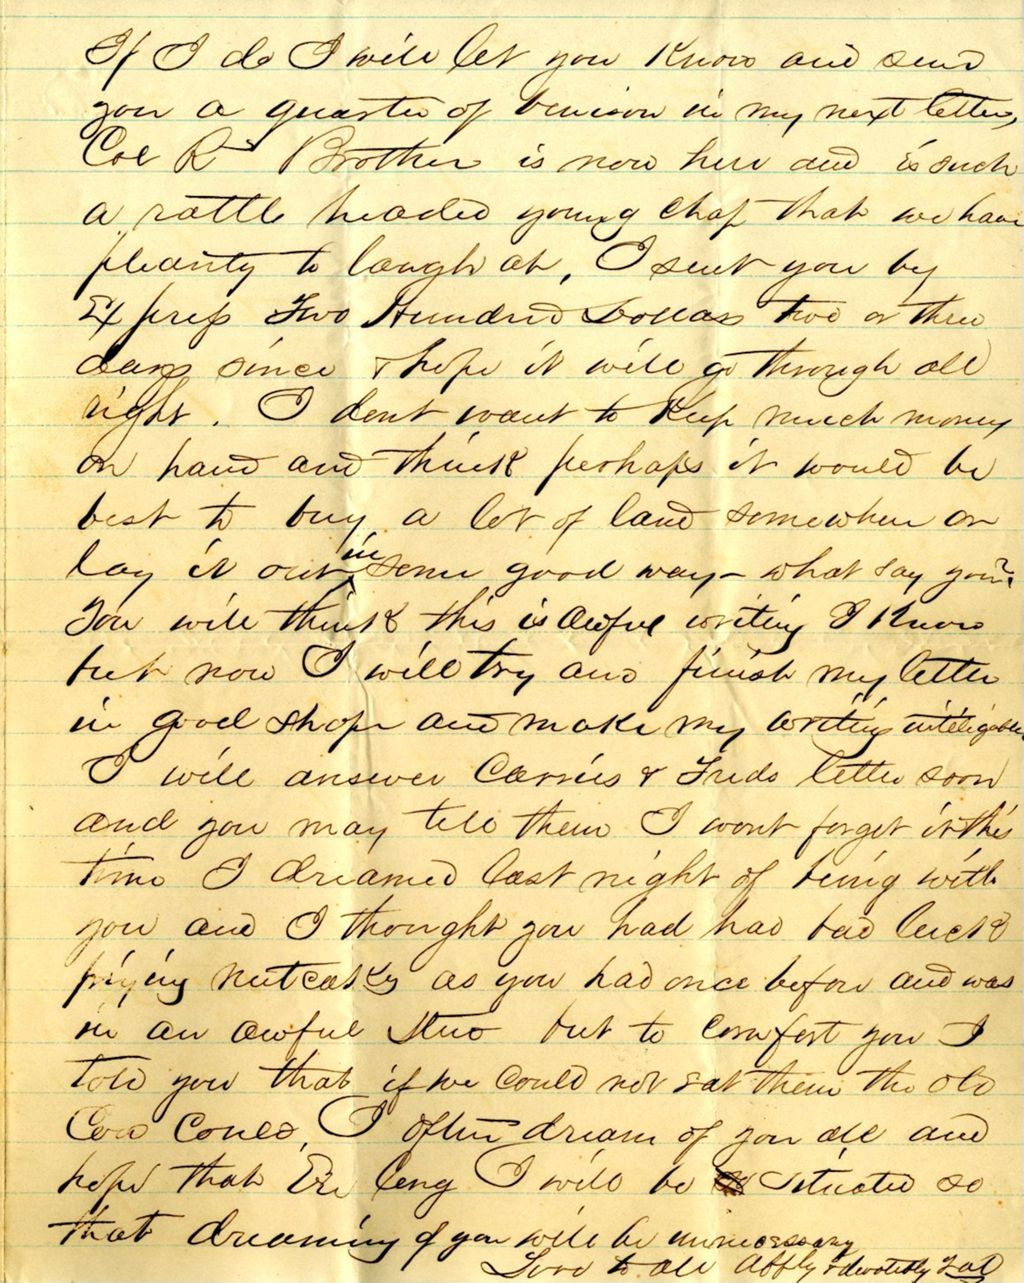 If I do I will let you Know and send
you a quarter of venison in my next letter,
Col Rs Brother is now here and is such
a rattle headed young chap that we have
pleanty to laugh at, I sent you by
Express Two Hundred Dollars two or three
days since & hope it will go through all
right. I dont want to Keep much money
on hand and think perhaps it would be
best to buy a lot of land somewhere or
lay it out in some good way - what say you?
You will think this is awful writing I Know
but now I will try and finish my letter
in good shape and make my writing inteligable
I will answer Carries & Freds letter soon
and you may tell them I wont forget it this
time I dreamed last night of being with
you and I thought you had had bad luck
frying nutcakes as you had once before and was
in an awful stew but to comfort you I
told you that if we could not eat them the old
Cow could, I often dream of you all and
hope that Ere long I will be situated so
that dreaming of you will be unnecessary
Love to all Affly & devotedly